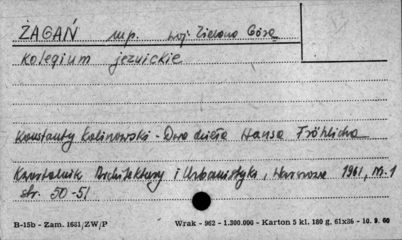 ŻAGAŃ mp. woj. Zielona Góra
Kolegium jezuickie
Konstanty Kalinowski - Dwa dzieła Hansa Fröhlicha
Kwartalnik Architektury i Urbanistyki, Warszawa 1961, nr. 1
str. 50-51
B-15b - Zam. 1661/ZW/P Wrak - 962 - 1.300.000 - Karton 5 kl. 180 g. 61x86 - 10. 9. 60